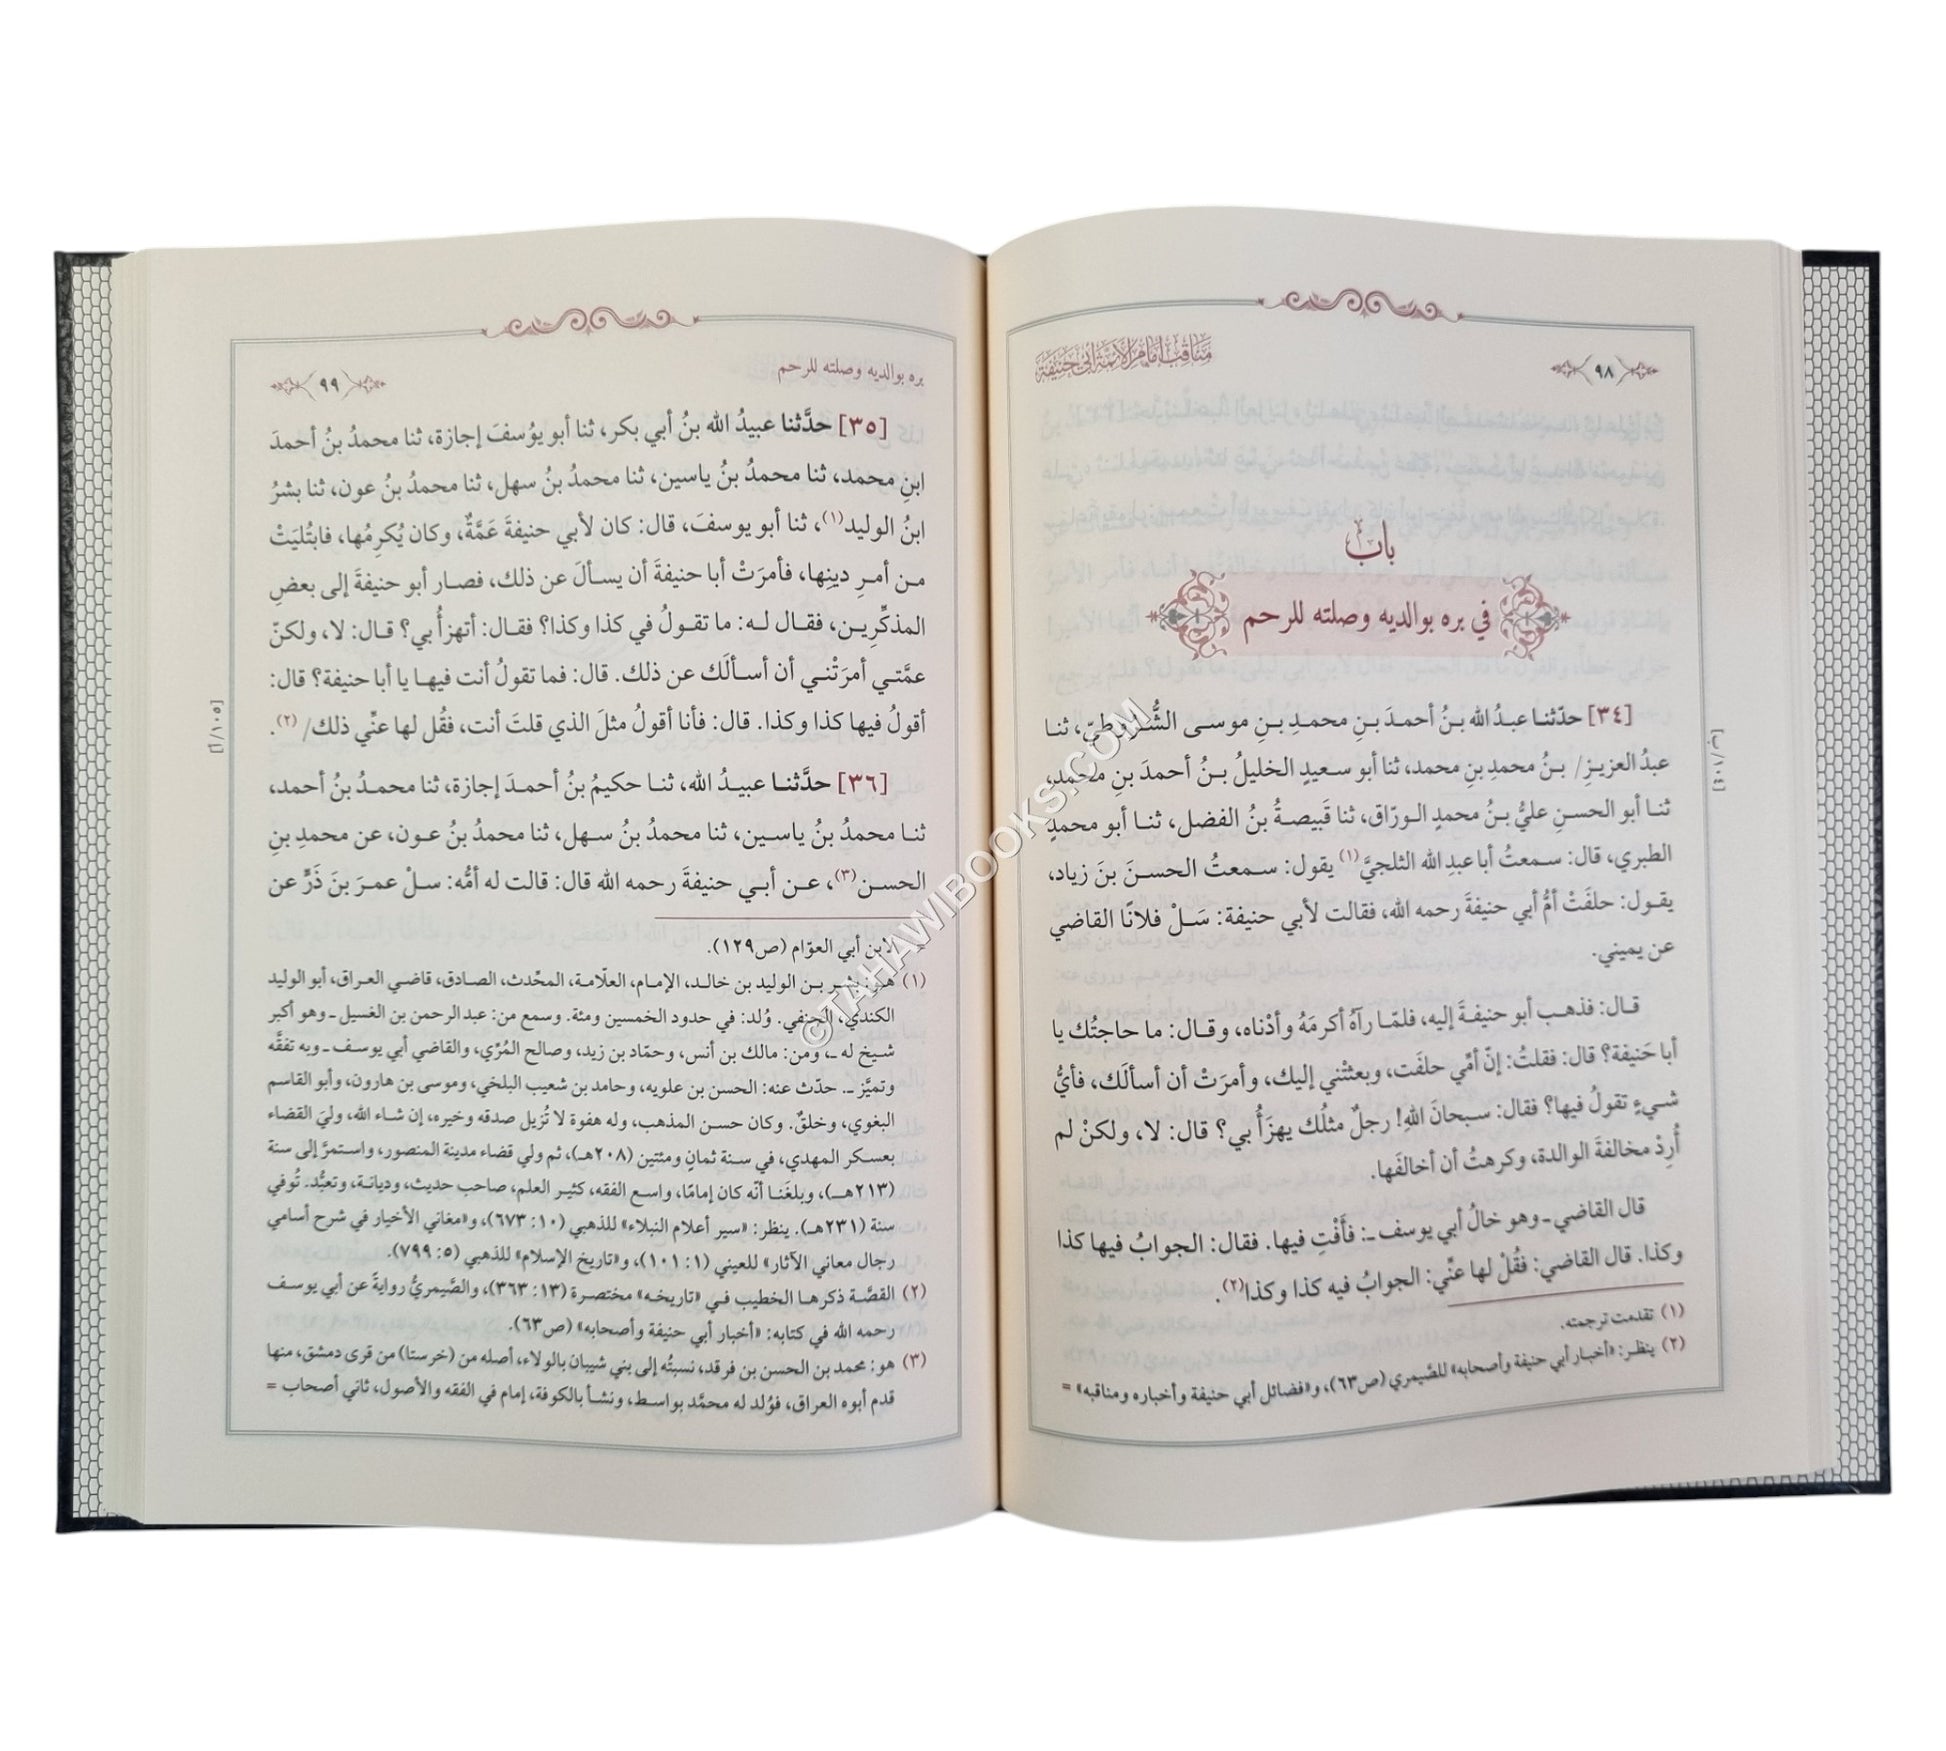 ٩٨
مناقب إمام الأئمة أبي حنيفة
باب
في بره بوالديه وصلته للرحم
[٣٤] حدّثنـا عبدُ الله بـنُ أحمـدَ بـنِ محمـدِ بـنِ موسـى الشُّـرُوطيّ، ثنـا
عبدُ العزيـزِ/ بـنُ محمدِ بنِ محمد، ثنا أبو سـعيدٍ الخليلُ بـنُ أحمدَ بنِ محمد،
ثنـا أبو الحسـنِ عليُّ بـنُ محمدٍ الـورّاق، ثنا قَبيصـةُ بنُ الفضل، ثنـا أبو محمدٍ
الطبري، قال: سـمعتُ أبا عبدِ الله الثلجيَّ(١) يقول: سـمعتُ الحسـنَ بنَ زياد،
يقـول: حلفَتْ أمُّ أبي حنيفةَ رحمه الله، فقالت لأبي حنيفة: سَلْ فلانًا القاضي
عن يميني.
[١٠٤/ب]
قـال: فذهـب أبو حنيفـةَ إليه، فلمّـا رآهُ أكرمَهُ وأدْناه، وقـال: ما حاجتُك يا
أبا حَنيفة؟ قال: فقلتُ: إنّ أمّي حلفَت، وبعثتْني إليك، وأمرَتْ أن أسألَك، فأيُّ
شـيءٍ تقولُ فيها؟ فقال: سـبحانَ اللهِ! رجلٌ مثلُك يهزَأُ بي؟ قال: لا، ولكنْ لم
أُرِدْ مخالفةَ الوالدة، وكرهتُ أن أخالفَها.
قال القاضي ـ وهو خالُ أبي يوسف ـ: فأَفْتِ فيها. فقال: الجوابُ فيها كذا
وكذا. قال القاضي: فقُلْ لها عنِّي: الجوابُ فيه كذا وكذا(٢).
(١) تقدمت ترجمته.
(٢) ينظـر: «أخبـار أبي حنيفة وأصحابه» للصَّيمري (ص٦٣)، و«فضائل أبي حنيفة وأخباره ومناقبه» =
بره بوالديه وصلته للرحم
٩٩
[٣٥] حدَّثنا عبيدُ الله بنُ أبي بكر، ثنا أبو يوُسفَ إجازة، ثنا محمدُ بنُ أحمدَ
ابنِ محمد، ثنا محمدُ بنُ ياسين، ثنا محمدُ بنُ سهل، ثنا محمدُ بنُ عون، ثنا بشرُ
ابنُ الوليد(١)، ثنا أبو يوسفَ، قال: كان لأبي حنيفةَ عَمَّةٌ، وكان يُكرِمُها، فابتُليَتْ
مـن أمـرِ دينِها، فأمرَتْ أبا حنيفةَ أن يسـألَ عن ذلك، فصـار أبو حنيفةَ إلى بعضِ
المذكِّريـن، فقـال لـه: ما تقـولُ في كذا وكذا؟ فقـال: أتهزأُ بي؟ قـال: لا، ولكنّ
عمَّتـي أمرَتْنـي أن أسـألَك عن ذلك. قال: فما تقولُ أنت فيهـا يا أبا حنيفة؟ قال:
أقولُ فيها كذا وكذا. قال: فأنا أقولُ مثلَ الذي قلتَ أنت، فقُل لها عنِّي ذلك/ (٢).
[١٠٥/أ]
[٣٦] حدَّثنـا عبيـدُ الله، ثنـا حكيمُ بنُ أحمـدَ إجازة، ثنا محمـدُ بنُ أحمد،
ثنـا محمدُ بنُ ياسـين، ثنا محمدُ بنُ سـهل، ثنا محمدُ بنُ عـون، عن محمدِ بنِ
الحسـن(٣)، عـن أبـي حنيفةَ رحمه الله قال: قالت له أمُّه: سـلْ عمـرَ بنَ ذَرٍّ عن
لابن أبي العوّام (ص١٢٩).
(١) هـو: بشـر بـن الوليد بن خالـد، الإمـام، العلّامـة، المحّدث، الصادق، قاضـي العراق، أبو الوليد
الكندي، الحنفي. وُلد: في حدود الخمسين ومئة. وسمع من: عبد الرحمن بن الغسيل ـ وهو أكبر
شـيخ له ـ، ومن: مالك بن أنس، وحمّاد بن زيد، وصالح المُرّي، والقاضي أبي يوسـف ـ وبه تفقَّه
وتميَّز ـ. حدّث عنه: الحسن بن علويه، وحامد بن شعيب البلخي، وموسى بن هارون، وأبو القاسم
البغوي، وخلقٌ. وكان حسـن المذهب، وله هفوة لا تُزيل صدقه وخيره، إن شاء الله، وليَ القضاء
بعسـكر المهدي، في سـنة ثمانٍ ومئتين (٢٠٨هـ)، ثم ولي قضاء مدينة المنصور، واستمرَّ إلى سنة
(٢١٣هـ)، وبلغَنـا أنّه كان إمامًا، واسـع الفقه، كثيـر العلم، صاحب حديث، وديانـة، وتعبُّد. تُوفي
سنة (٢٣١هـ). ينظر: «سير أعلام النبلاء» للذهبي (١٠: ٦٧٣)، و«مغاني الأخيار في شرح أسامي
رجال معاني الآثار» للعيني (١: ١٠١)، و«تاريخ الإسلام» للذهبي (٥: ٧٩٩).
(٢) القصَّـة ذكرهـا الخطيب فـي «تاريخـه» مختصـرة (١٣: ٣٦٣)، والصَّيمريُّ روايةً عن أبي يوسـف
رحمه الله في كتابه: «أخبار أبي حنيفة وأصحابه» (ص٦٣).
(٣) هو: محمد بن الحسن بن فرقد، نسبتُه إلى بني شيبان بالولاء، أصله من (خرستا) من قرى دمشق، منها
قدم أبوه العراق، فوُلد له محمَّد بواسـط، ونشـأ بالكوفة، إمام في الفقه والأصول، ثاني أصحاب =
©TAHAWIBOOKS.COM